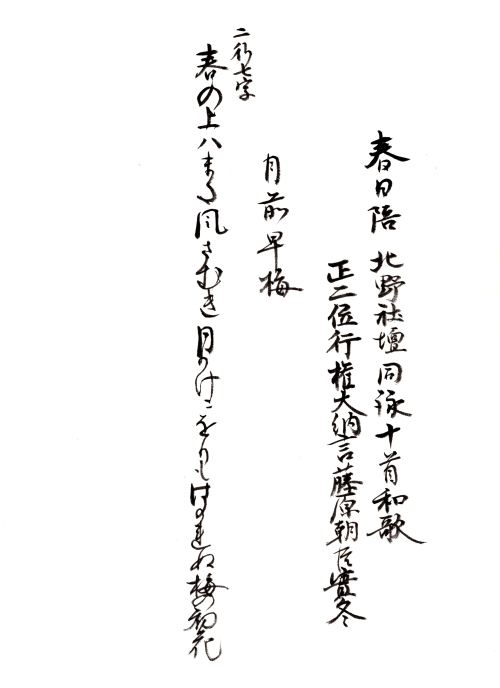 春日陪 北野社壇同詠十首和歌
正二位行権大納言藤原朝臣實冬
月前早梅
二行七字
春の上ハまた風さむき月かけにをりもはれぬ梅の初花